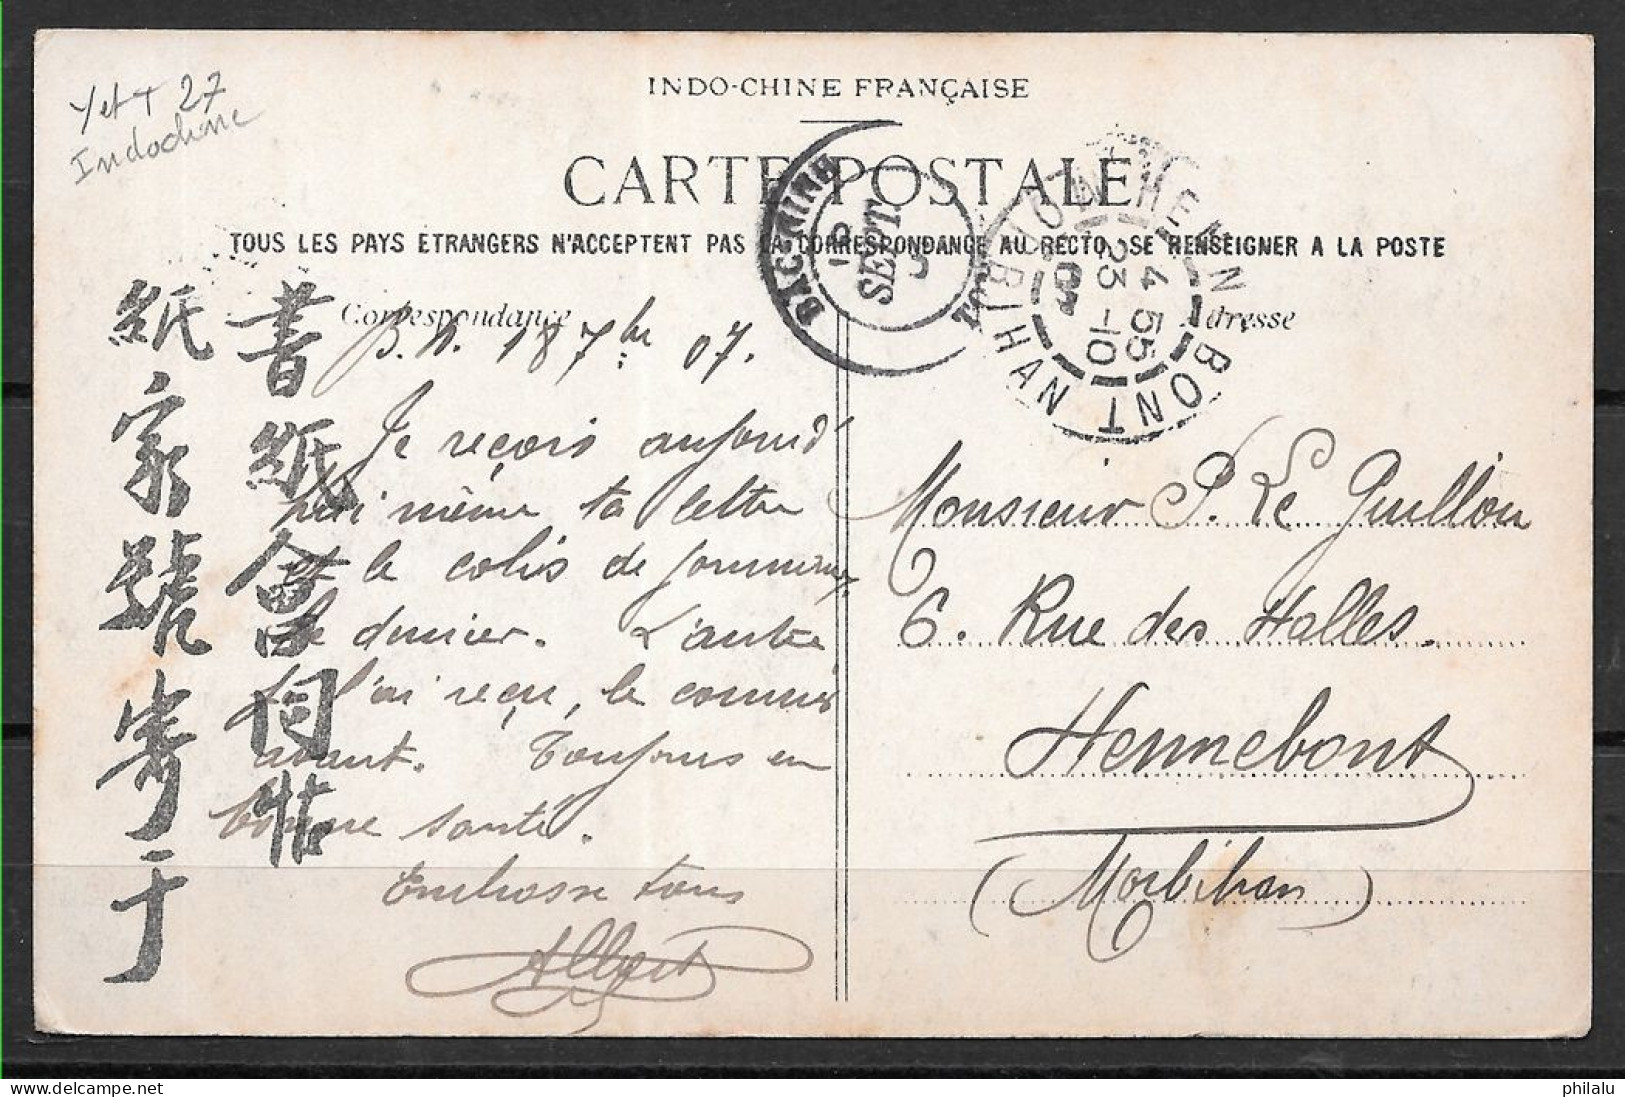 Yet T 27
Indochine
INDO-CHINE FRANÇAISE
CARTE POSTALE
TOUS LES PAYS ETRANGERS N'ACCEPTENT PAS LA CORRESPONDANCE AU RECTO, SE RENSEIGNER A LA POSTE
BAC-NINH
SEPT.
HENNEBONT
MORBIHAN
4 55
23 -10
07
Correspondance
Adresse
B.N. 18 7bre 07.
Je reçois aujourd'
hui même ta lettre
et le colis de journaux
de dernier. L'autre
je l'ai reçu, le courrier
avant. Toujours en
bonne santé.
Embrasse tous
Albert
書紙會同
紙家號寄于
Monsieur P. Le Guillou
6. Rue des Halles.
Hennebont
(Morbihan)
philalu